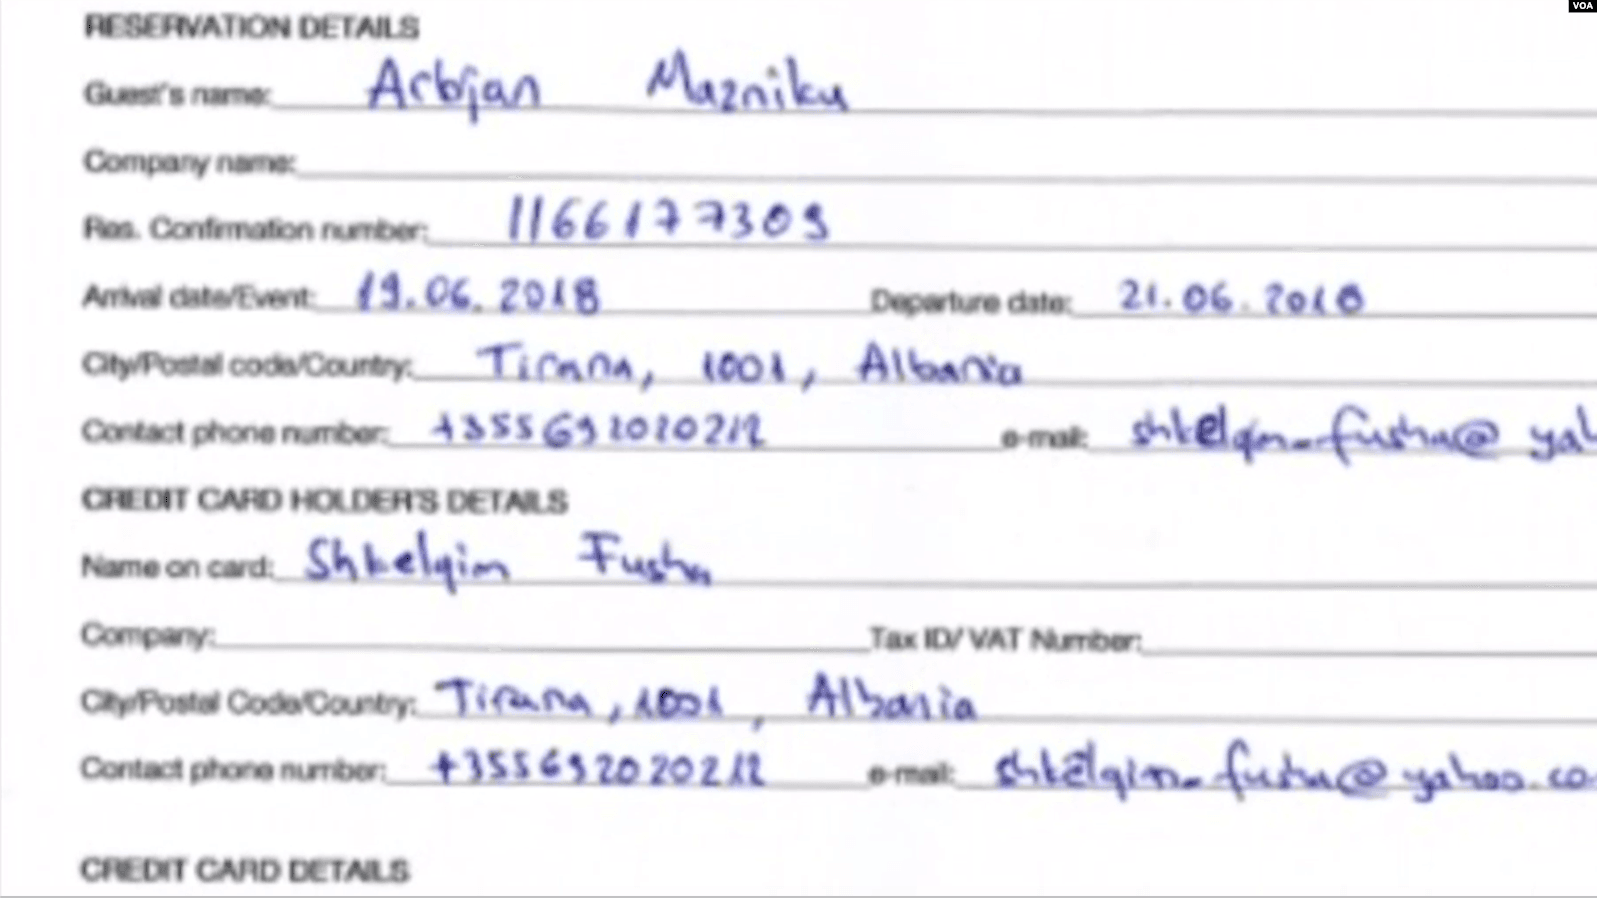 VOA
RESERVATION DETAILS
Guest's name: Arbjan Mazniku
Company name:
Res. Confirmation number: 1166177309
Arrival date/Event: 19.06.2018 Departure date: 21.06.2018
City/Postal code/Country: Tirana, 1001, Albania
Contact phone number: +355692020212 e-mail: shkelqim_fusha@yah
CREDIT CARD HOLDER'S DETAILS
Name on card: Shkelqim Fusha
Company: Tax ID/ VAT Number:
City/Postal Code/Country: Tirana, 1001, Albania
Contact phone number: +355692020212 e-mail: shkelqim_fusha@yahoo.co
CREDIT CARD DETAILS